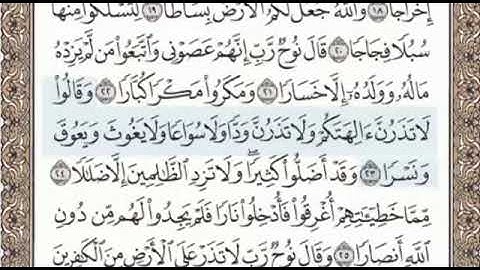 إِخْرَاجًا ١٨ وَٱللَّهُ جَعَلَ لَكُمُ ٱلْأَرْضَ بِسَاطًا ١٩ لِّتَسْلُكُوا۟ مِنْهَا
سُبُلًا فِجَاجًا ٢٠ قَالَ نُوحٌ رَّبِّ إِنَّهُمْ عَصَوْنِى وَٱتَّبَعُوا۟ مَن لَّمْ يَزِدْهُ
مَالُهُۥ وَوَلَدُهُۥٓ إِلَّا خَسَارًا ٢١ وَمَكَرُوا۟ مَكْرًا كُبَّارًا ٢٢ وَقَالُوا۟
لَا تَذَرُنَّ ءَالِهَتَكُمْ وَلَا تَذَرُنَّ وَدًّا وَلَا سُوَاعًا وَلَا يَغُوثَ وَيَعُوقَ
وَنَسْرًا ٢٣ وَقَدْ أَضَلُّوا۟ كَثِيرًا ۖ وَلَا تَزِدِ ٱلظَّٰلِمِينَ إِلَّا ضَلَٰلًا ٢٤
مِّمَّا خَطِيٓـَٰٔتِهِمْ أُغْرِقُوا۟ فَأُدْخِلُوا۟ نَارًا فَلَمْ يَجِدُوا۟ لَهُم مِّن دُونِ
ٱللَّهِ أَنصَارًا ٢٥ وَقَالَ نُوحٌ رَّبِّ لَا تَذَرْ عَلَى ٱلْأَرْضِ مِنَ ٱلْكَٰفِرِينَ